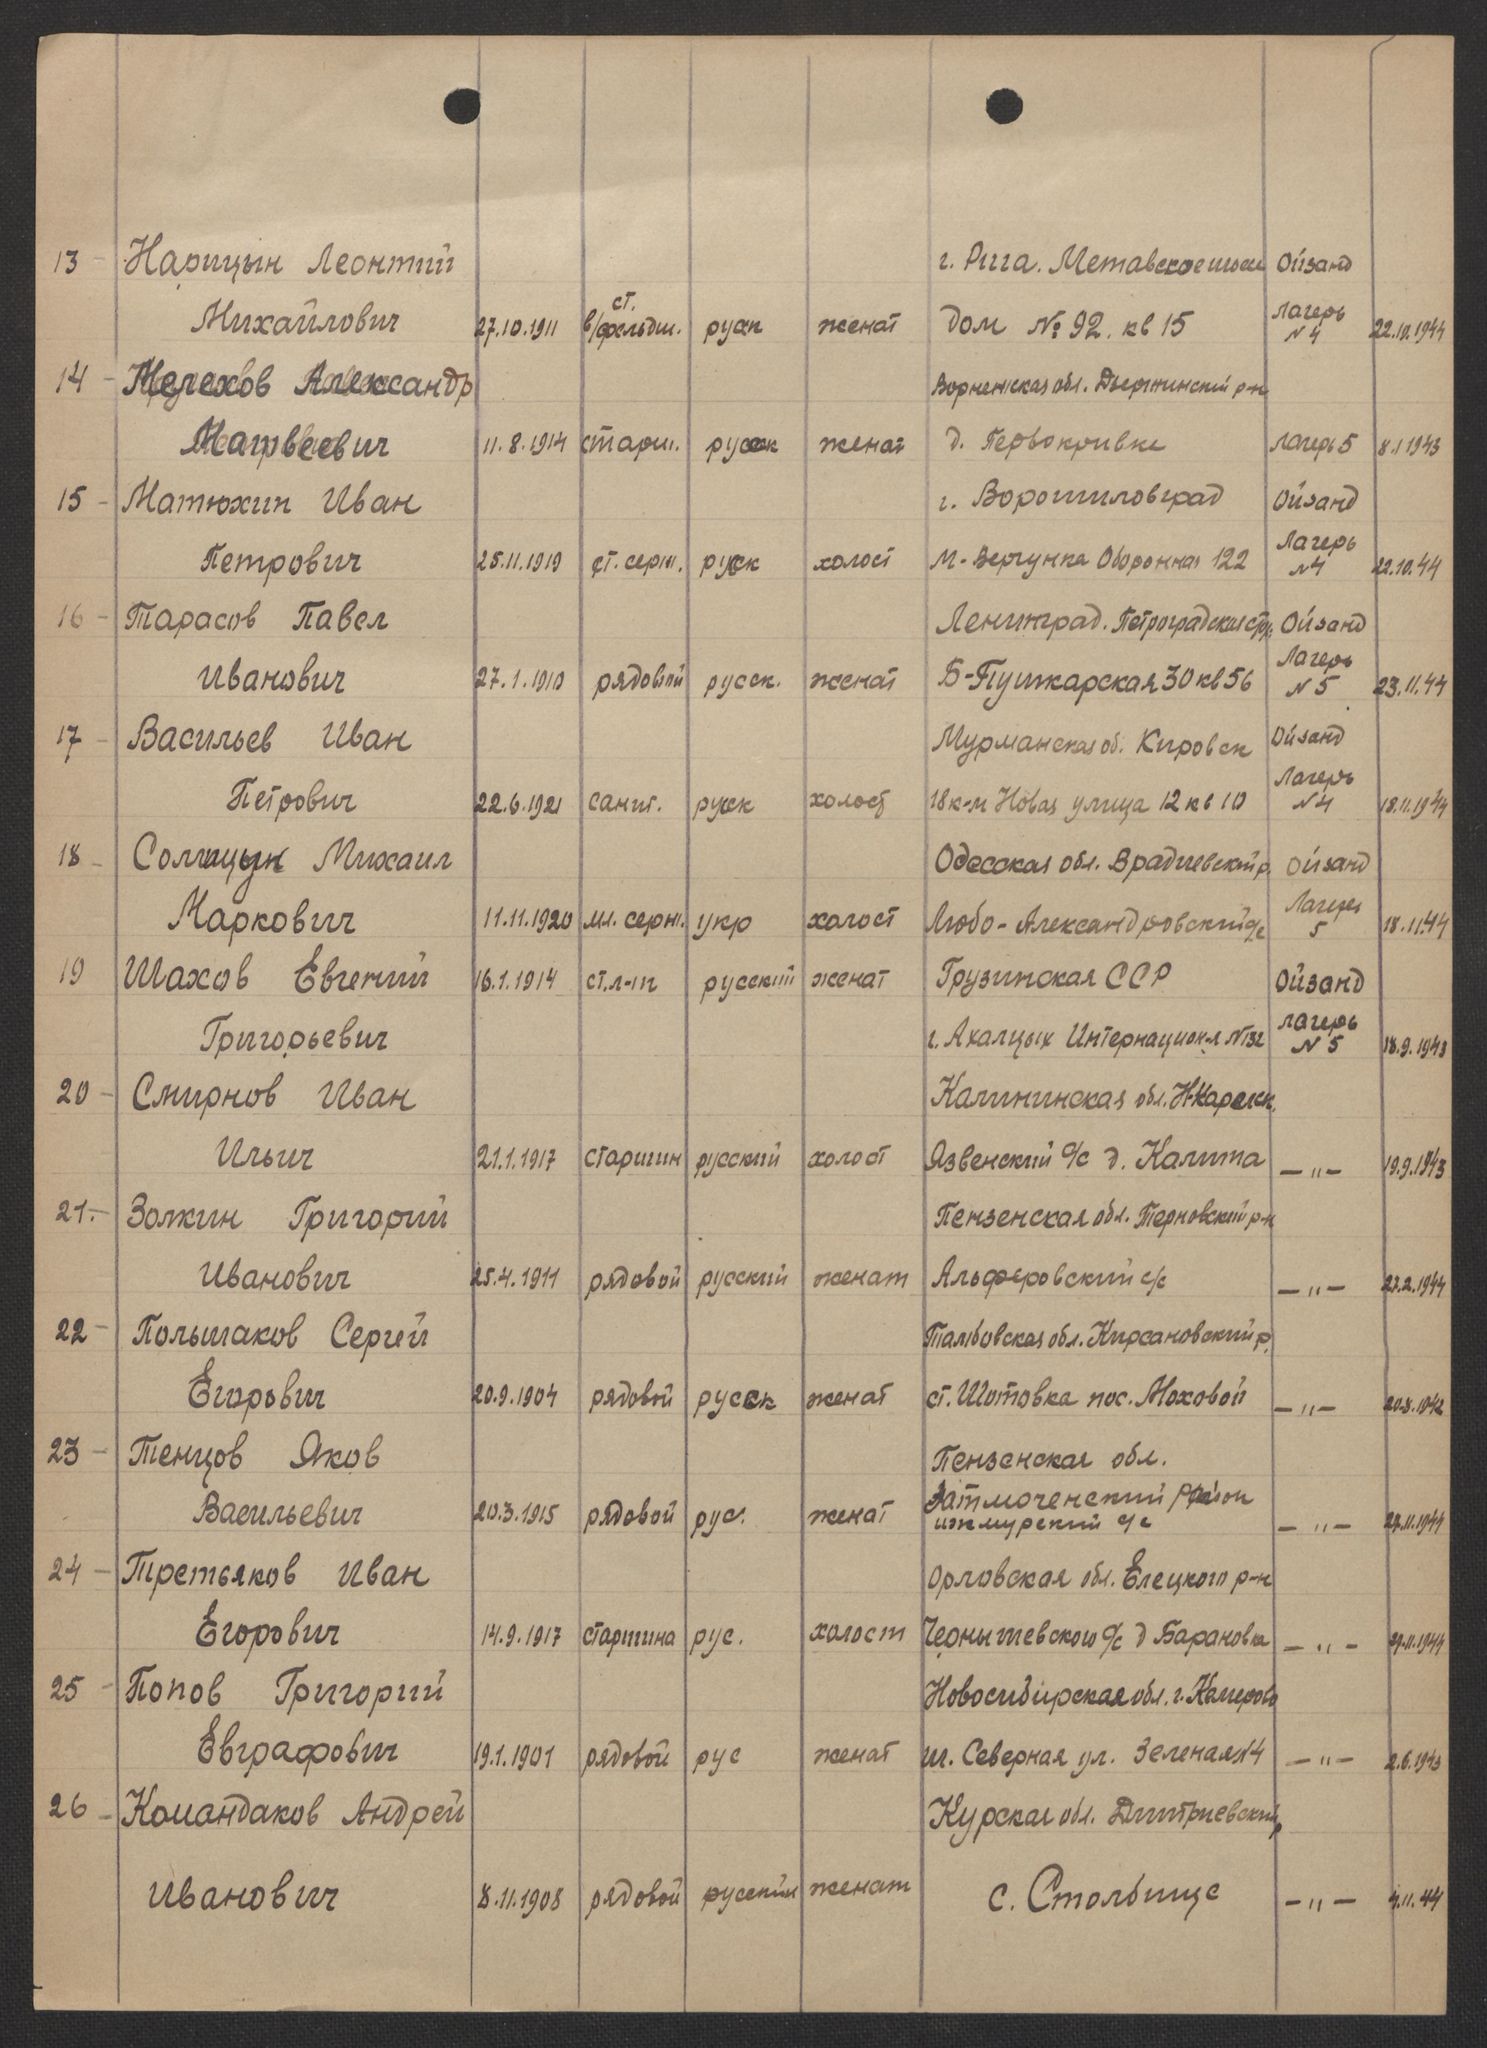 13 - Нарицын Леонтий г. Рига. Метавское шоссе Ойзанд
Михайлович 27.10.1911 ст. в/фельдш. русск женат дом № 92. кв 15 Лагерь N 4 22.10.1944
14 - Мелехов Александр обл. Дзержинский р-н
Матвеевич 11.8.1914 старш. русск женат д. Первокривке Лагерь 5 8.1 1943
15 - Матюхин Иван г. Ворошиловград Ойзанд
Петрович 25.11.1919 ст. серж. русск холост М-Вергунка Оборонная 122 Лагерь N4 22.10.44
16 - Тарасов Павел Ленинград. Петроградская стор. Ойзанд
Иванович 27.1.1910 рядовой русск. женат Б-Пушкарская 30 кв 56 Лагерь N 5 23.11.44
17 - Васильев Иван Мурманская об. Кировск Ойзанд
Петрович 22.6.1921 санит. русск холост 18 к-м Новая улица 12 кв 10 Лагерь N4 18.11.1944
18 - Михаил Одесская обл. Врадиевский р. Ойзанд
Маркович 11.11.1920 мл. серж. укр холост Любо-Александровский с/с Лагерь 5 18.11.44
19 Шахов Евгений 16.1.1914 ст. л-нт русский женат Грузинская ССР Ойзанд
Григорьевич г. Ахалцых Интернационл N132 Лагерь N 5 18.9.1943
20 - Смирнов Иван Калининская обл. Н-Карельск.
Ильич 21.1.1917 старшин русский холост Язвенский с/с д. Калита — " — 19.9.1943
21. - Золкин Григорий Пензенская обл. Терновский р-н
Иванович 25.4.1911 рядовой русский женат Альферовский с/с — " — 27.2.1944
22 - Польшаков Сергей Тамбовская обл. Кирсановский р.
Егорович 20.9.1904 рядовой русск женат ст. Шотовка пос. Моховой — " — 20.8.1942
23 - Тенцов Яков Пензенская обл.
Васильевич 20.3.1915 рядовой рус. женат район с/с — " — 27.11.1944
24 - Третьяков Иван Орловская обл. Елецкого р-н
Егорович 14.9.1917 старшина рус. холост Чернышевского с/с д Барановка — " — 27.11.1944
25 - Попов Григорий Новосибирская обл. г. Кемерово
Евграфович 19.1.1901 рядовой рус женат ш. Северная ул. Зеленая 14 — " — 2.6.1943
26 - Командаков Андрей Курская обл. Дмитриевский р
Иванович 8.11.1908 рядовой русский женат с. Столбище — " — 4.11.44